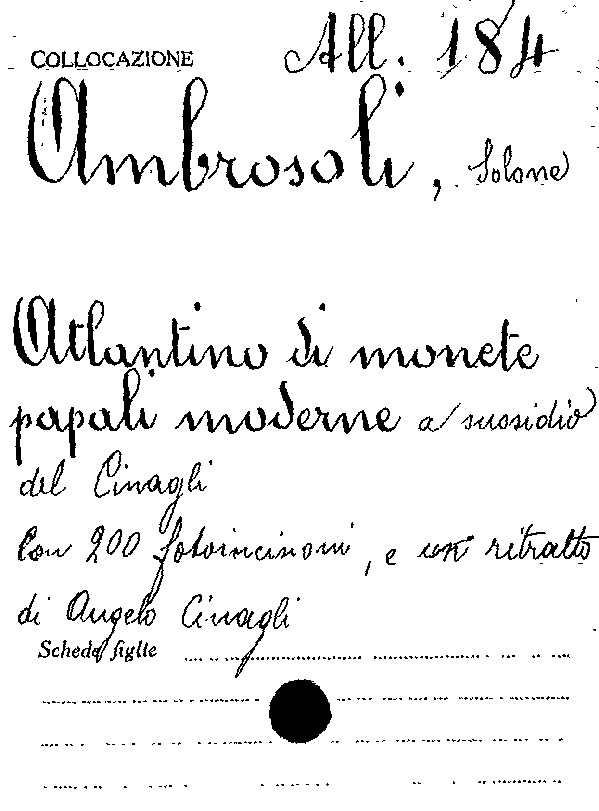 COLLOCAZIONE All. 184
Ambrosoli, Solone
Atlantino di monete
papali moderne a sussidio
del Cinagli
Con 200 fotoincisioni, e un ritratto
di Angelo Cinagli
Schede figlie